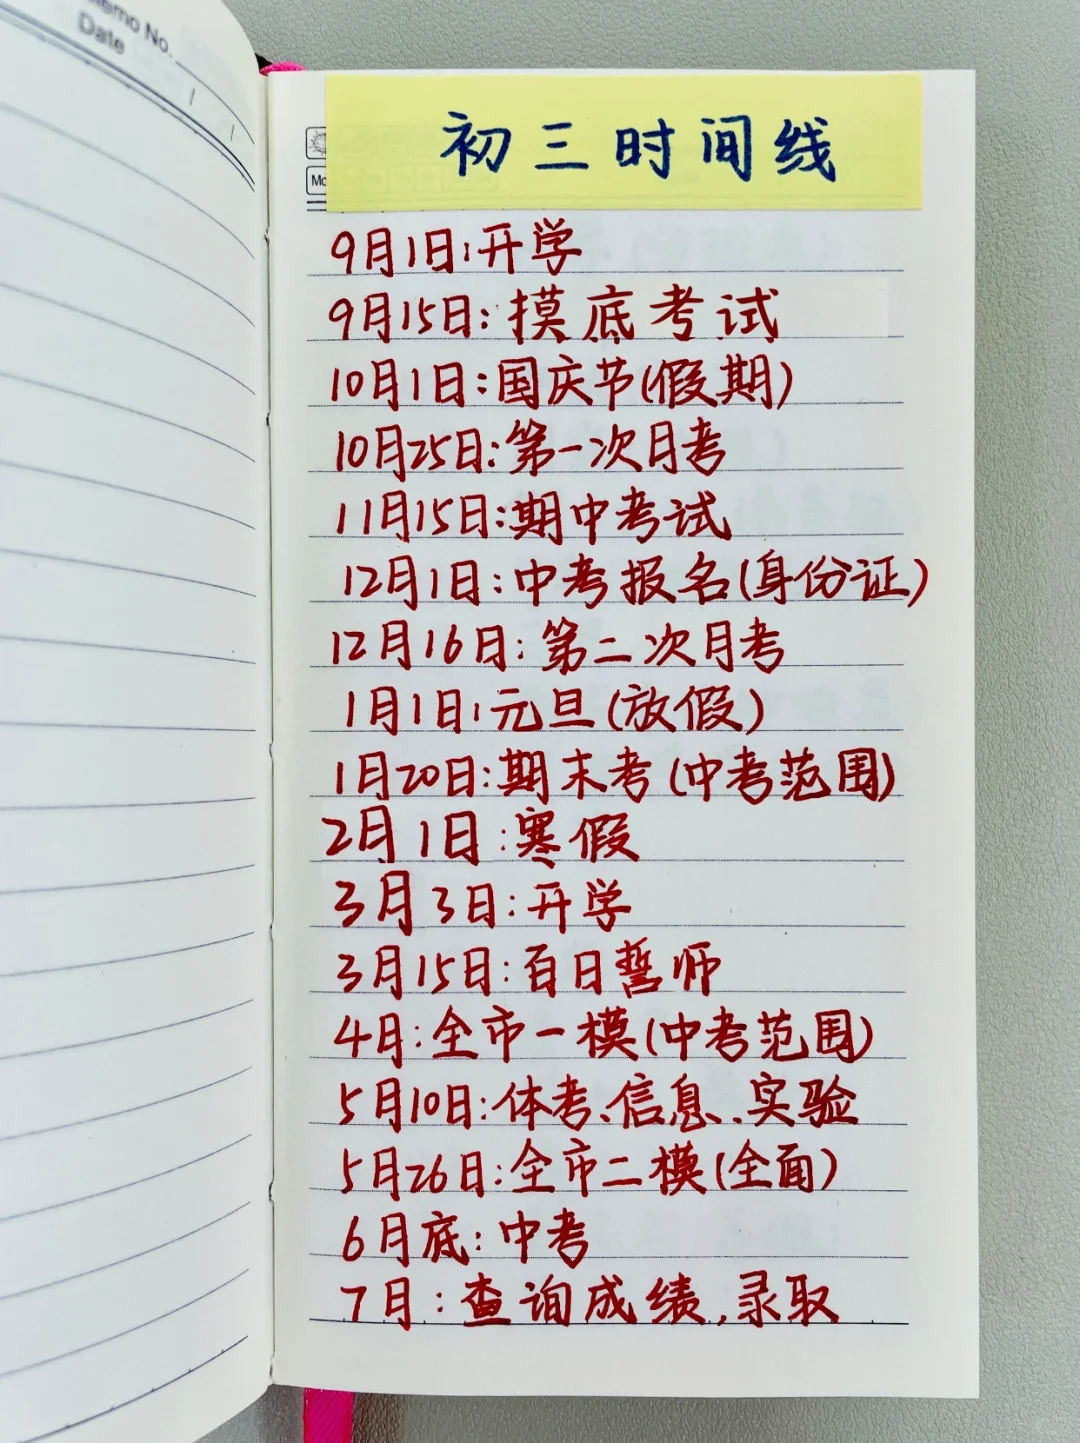 Memo No.
Date / /
Mo
初三时间线
9月1日:开学
9月15日:摸底考试
10月1日:国庆节(假期)
10月25日:第一次月考
11月15日:期中考试
12月1日:中考报名(身份证)
12月16日:第二次月考
1月1日:元旦(放假)
1月20日:期末考(中考范围)
2月1日:寒假
3月3日:开学
3月15日:百日誓师
4月:全市一模(中考范围)
5月10日:体考、信息、实验
5月26日:全市二模(全面)
6月底:中考
7月:查询成绩,录取